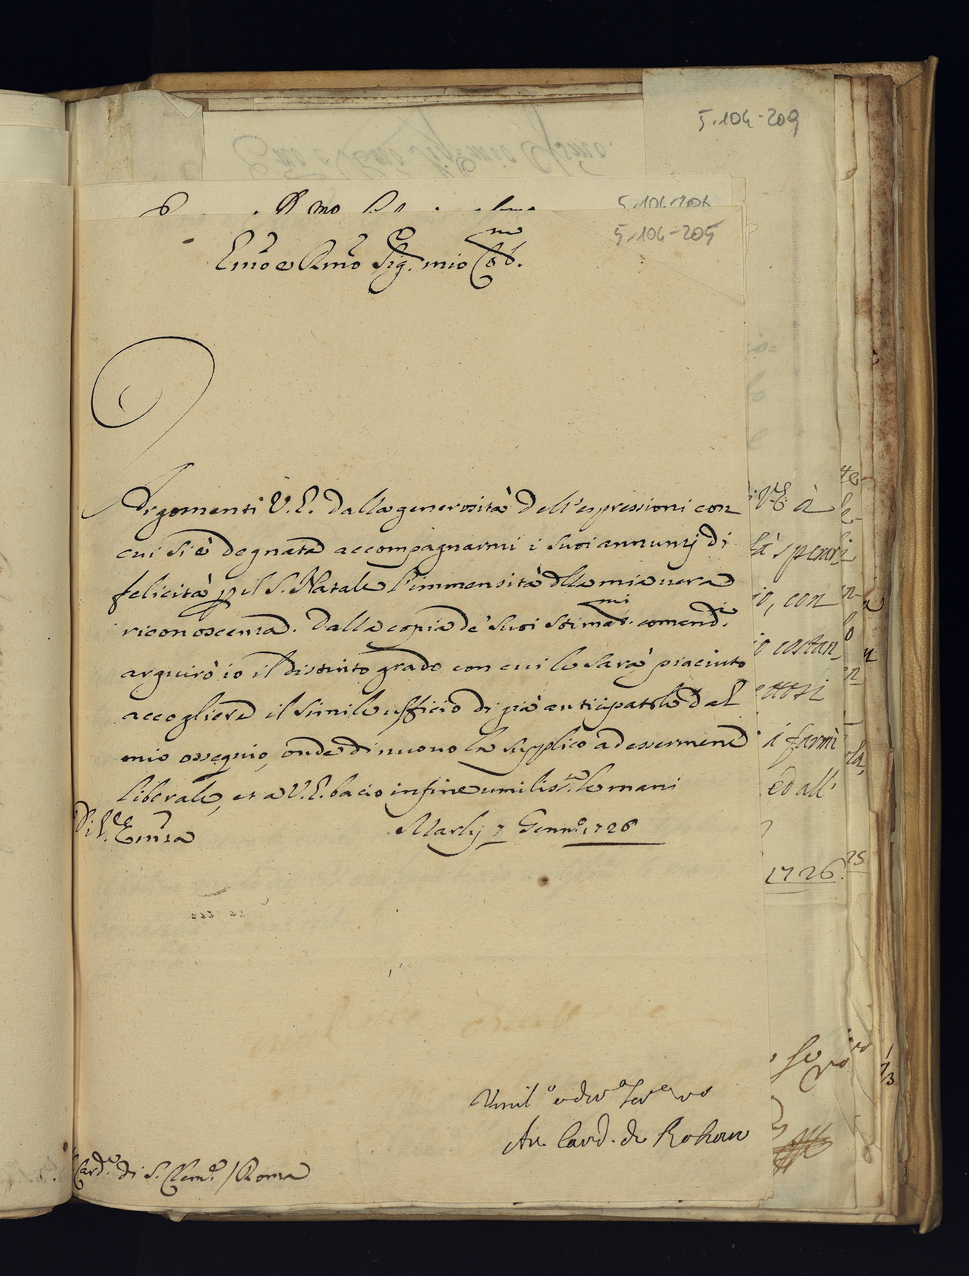 5.104-209
5.104-206
5.104-205
Emo e Rmo Sig.re mio Oss.mo
Argomenti V. E. dalla generosità dell'espressioni con
cui si è degnata accompagnarmi i suoi annunzj di
felicità p il S. Natale l'immensità dlla mia vera
riconoscenza. Dalla copia de' suoi stimat.mi comandi
arguirò io il distinto grado con cui le sarà piaciuto
accogliere il simile ufficio di già anticipatole dal
mio ossequio, onde di nuovo la supplico ad essermene
liberale, et a V. E. bacio infine umiliss.te le mani
Di V.E. Emza
Marly 7 Genn.o 1726
Umil.o e dev.o Ser.e vo
Ar. Card. de Rohan
Card.e di S. Clem.e / Roma
di V.E. à
io, con
io costan,
i farmi
ed all'
1726